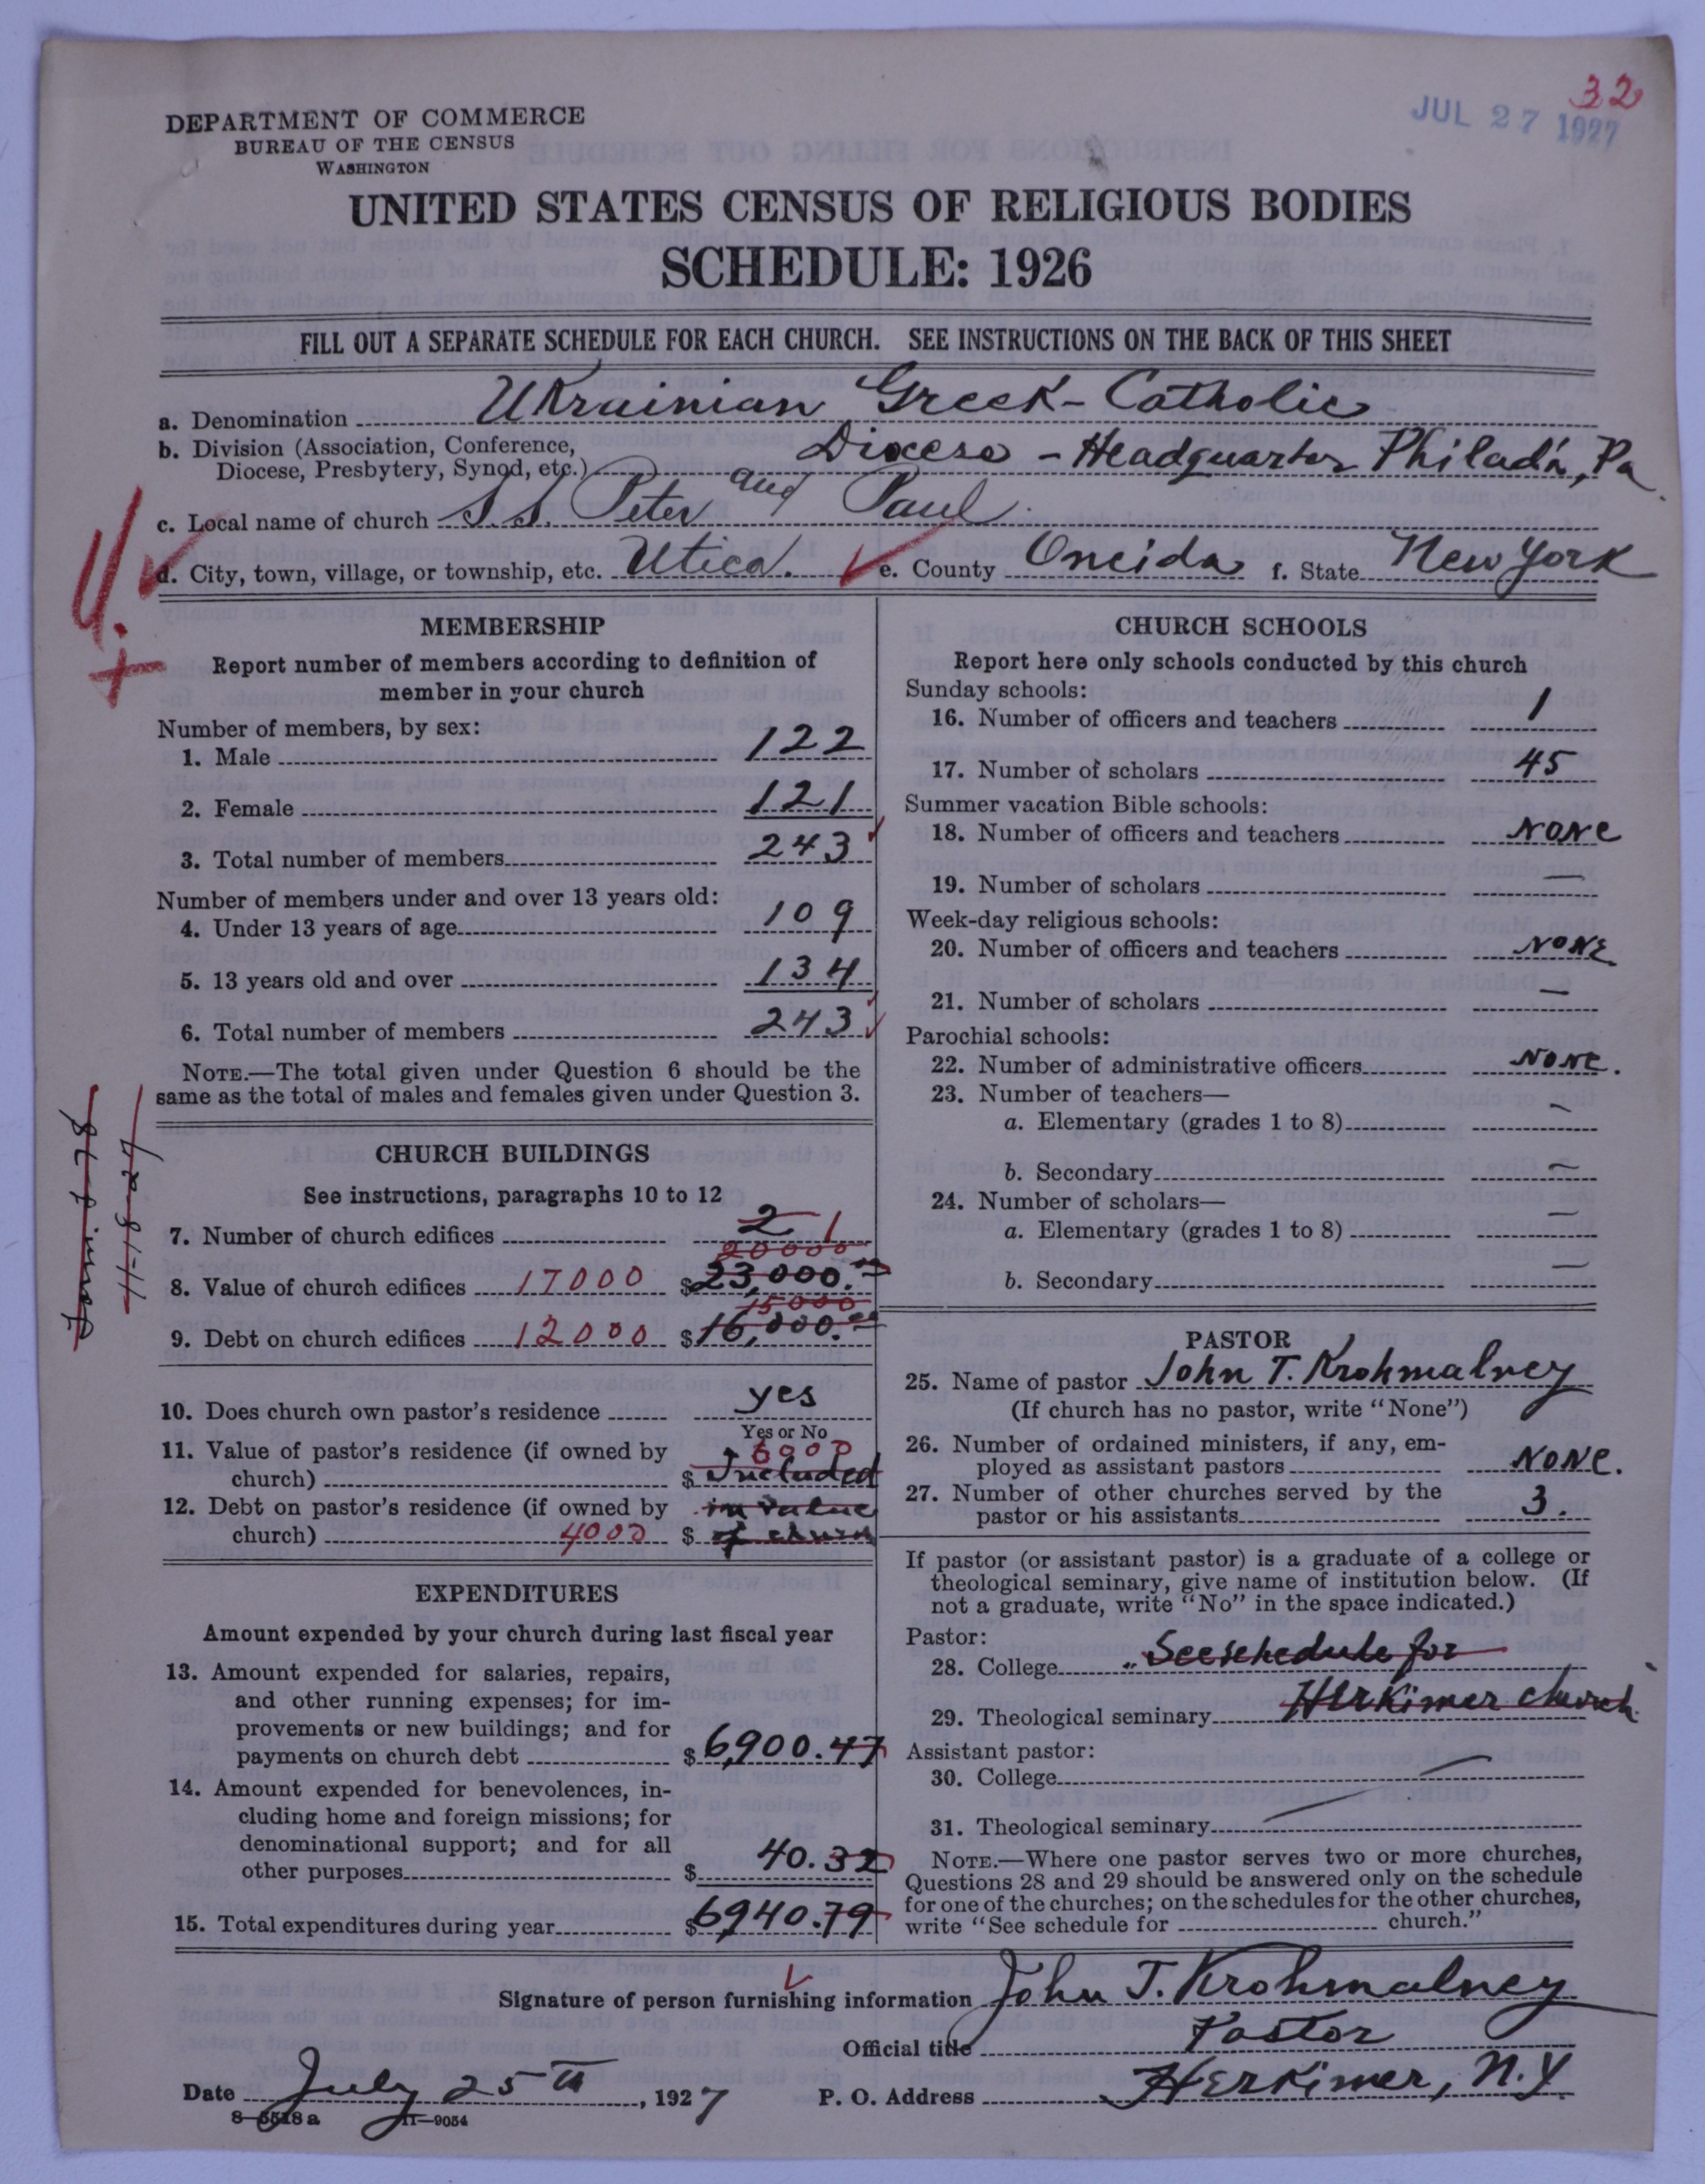 32
JUL 27 1927
DEPARTMENT OF COMMERCE
BUREAU OF THE CENSUS
WASHINGTON
UNITED STATES CENSUS OF RELIGIOUS BODIES
SCHEDULE: 1926
FILL OUT A SEPARATE SCHEDULE FOR EACH CHURCH. SEE INSTRUCTIONS ON THE BACK OF THIS SHEET
a. Denomination Ukrainian Greek-Catholic
b. Division (Association, Conference,
Diocese, Presbytery, Synod, etc.) Diocese - Headquarter Philad'a, Pa.
c. Local name of church S.S. Peter and Paul
d. City, town, village, or township, etc. Utica. e. County Oneida f. State New York
MEMBERSHIP
Report number of members according to definition of
member in your church
Number of members, by sex:
1. Male 122
2. Female 121
3. Total number of members 243
Number of members under and over 13 years old:
4. Under 13 years of age 109
5. 13 years old and over 134
6. Total number of members 243
NOTE.—The total given under Question 6 should be the
same as the total of males and females given under Question 3.
CHURCH BUILDINGS
See instructions, paragraphs 10 to 12
7. Number of church edifices 2 1
20000
8. Value of church edifices 17000 $23,000.00
15000
9. Debt on church edifices 12000 $16,000.00
10. Does church own pastor's residence yes
Yes or No
11. Value of pastor's residence (if owned by 6000
church) $ Included
12. Debt on pastor's residence (if owned by in value
church) 4000 $ of church
EXPENDITURES
Amount expended by your church during last fiscal year
13. Amount expended for salaries, repairs,
and other running expenses; for im-
provements or new buildings; and for
payments on church debt $6,900.47
14. Amount expended for benevolences, in-
cluding home and foreign missions; for
denominational support; and for all
other purposes $ 40.32
15. Total expenditures during year $6,940.79
CHURCH SCHOOLS
Report here only schools conducted by this church
Sunday schools:
16. Number of officers and teachers 1
17. Number of scholars 45
Summer vacation Bible schools:
18. Number of officers and teachers NONE
19. Number of scholars —
Week-day religious schools:
20. Number of officers and teachers NONE
21. Number of scholars —
Parochial schools:
22. Number of administrative officers NONE.
23. Number of teachers—
a. Elementary (grades 1 to 8) —
b. Secondary —
24. Number of scholars—
a. Elementary (grades 1 to 8) —
b. Secondary —
PASTOR
25. Name of pastor John T. Krohmalney
(If church has no pastor, write "None")
26. Number of ordained ministers, if any, em-
ployed as assistant pastors NONE.
27. Number of other churches served by the
pastor or his assistants 3.
If pastor (or assistant pastor) is a graduate of a college or
theological seminary, give name of institution below. (If
not a graduate, write "No" in the space indicated.)
Pastor:
28. College „ See schedule for
29. Theological seminary Herkimer church
Assistant pastor:
30. College —
31. Theological seminary —
NOTE.—Where one pastor serves two or more churches,
Questions 28 and 29 should be answered only on the schedule
for one of the churches; on the schedules for the other churches,
write "See schedule for church."
Signature of person furnishing information John T. Krohmalney
Official title Pastor
Date July 25th, 1927 P. O. Address Herkimer, N.Y.
8—5518a 11—9054